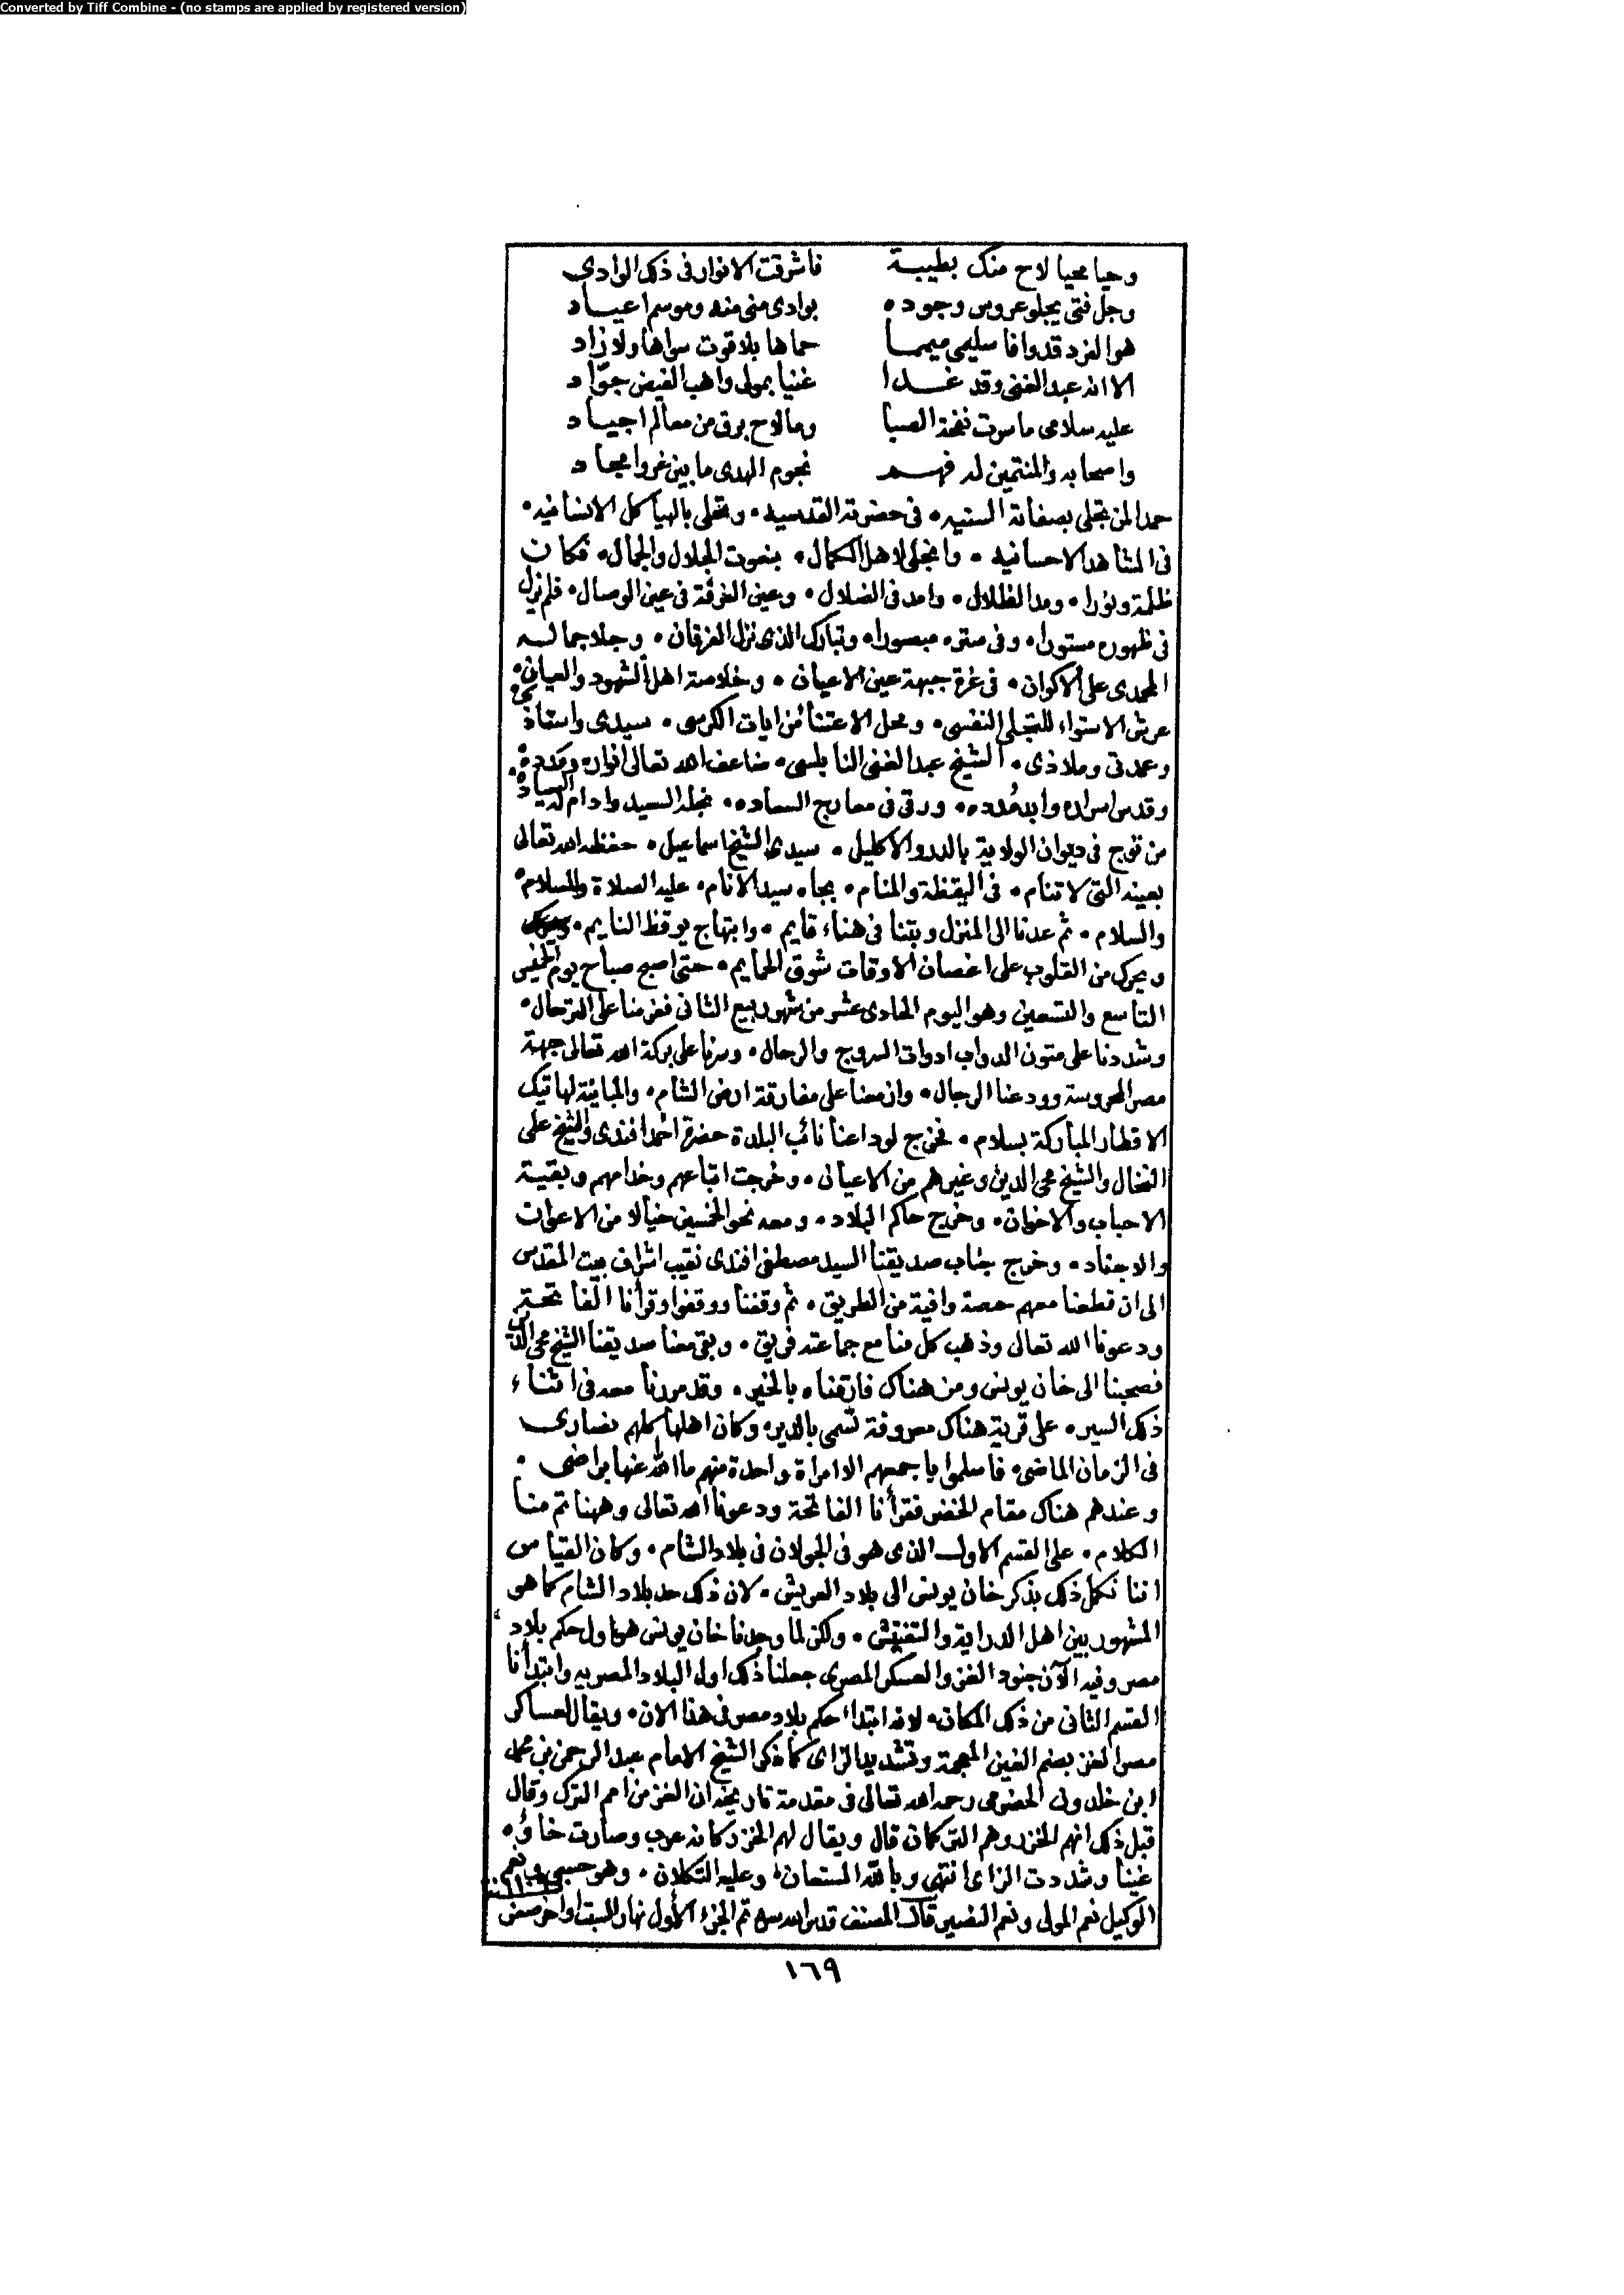 Converted by Tiff Combine - (no stamps are applied by registered version)
وحيا محيا لاح منك بطيبة فاشرقت الانوار فى ذلك الوادى
وجل فتى يجلو عروس وجوده بوادى منى منه وموسم اعياد
هو الفرد قد وافا سليمى ميمما حماها بلا قوت سواها ولا زاد
الا انه عبد الغنى وقد غدا غنيا بمولى واهب الفيض جوّاد
عليه سلامى ما سرت نفحة الصبا وما لاح برق من معالم اجياد
واصحابه والمنتمين له فهم نجوم الهدى ما بين غور وامجاد
حمدا لمن تجلى بصفاته السنيه • فى حضرته القدسيه • وتحلى بالهيأكل الانسانيه •
فى المشاهد الاحسانيه • وانجلى لاهل الكمال • بنعوت الجلال والجمال • فكان
ظلمة ونورا • ومد الظلال • وامد فى الضلال • وعين الفرقة فى عين الوصال • فلم يزل
فى ظهوره مستورا • وفى ستره مبصورا • وتبارك الذى نزل الفرقان • وجلا جماله
المحمدى على الاكوان • فى غرة جبهة عين الاعيان • وخلاصة اهل الشهود والعيان •
عرش الاستواء للتجلى النفسى • ومحل الاعتنا من ايات الكرسى • سيدى واستاذى
وعمدتى وملاذى • الشيخ عبد الغنى النابلسى • ضاعف الله تعالى انواره ومدده •
وقدس اسراره وابد مُدده • ورقى فى معارج السعاده • نجله السيد وادام له السياده
من توج فى ديوان الولاية بالدر والاكليل • سيدى الشيخ اسماعيل • حفظه الله تعالى
بعينه التى لا تنام • فى اليقظة والمنام • بجاه سيد الانام • عليه الصلاة والسلام •
والسلام • ثم عدنا الى المنزل وبتنا فى هناء قايم • وابتهاج يوقظ النايم •
ويحرك من القلوب على اغصان الاوقات شوق الحمايم • حتى اصبح صباح يوم الخميس
التاسع والتسعين وهو اليوم الحادى عشر من شهر ربيع الثانى فعزمنا على الترحال •
وشددنا على متون الدواب ادوات السروج والرحال • وسرنا على بركة الله تعالى جهة
مصر المحروسة وودعنا الرجال • وازمعنا على مفارقة ارض الشام • والمباينة لهاتيك
الاقطار المباركة بسلام • فخرج لوداعنا نائب البلدة حضرة احمد افندى والشيخ على
النخال والشيخ محى الدين وغيرهم من الاعيان • وخرجت اتباعهم وخدامهم وبقية
الاحباب والاخوان • وخرج حاكم البلاد • ومعه نحو الخمسين خيالا من الاعوان
والاجناد • وخرج جناب صديقنا السيد مصطفى افندى نقيب اشراف بيت المقدس
الى ان قطعنا معهم حصة وافية من الطريق • ثم وقفنا ووقفوا وقرأنا الفاتحة
ودعونا الله تعالى وذهب كل منا مع جماعته فريق • وبقى معنا صديقنا الشيخ محى الدين
فصحبنا الى خان يونس ومن هناك فارقناه بالخير • وقد مررنا معه فى اثناء
ذلك السير • على قرية هناك معروفة تسمى بالدير • وكان اهلها كلهم نصارى
فى الزمان الماضى • فاسلموا باجمعهم الا امراة واحدة منهم ما الله عنها براضى •
وعندهم هناك مقام الخضر فقرأنا الفاتحة ودعونا الله تعالى وههنا تم منا
الكلام • على القسم الاول الذى هو فى الجولان فى بلاد الشام • وكان القياس
اننا نكمل ذلك بذكر خان يونس الى بلاد العريش • لان ذلك حد بلاد الشام كما هو
المشهور بين اهل الدراية والتفتيش • ولكن لما وجدنا خان يونس هو اول حكم بلاد
مصر وفيه الآن جنود الغز والعسكر المصرى جعلنا ذلك اول البلاد المصريه وابتدأنا
القسم الثانى من ذلك المكان • لانه ابتداء حكم بلاد مصر فى هذا الان • ويقال لعساكر
مصر الغز بضم الغين المعجمة وتشديد الزاى كما ذكر الشيخ الامام عبد الرحمن بن محمد
ابن خلدون الحضرمى رحمه الله تعالى فى مقدمة تاريخه ان الغز من امم الترك وقال
قبل ذلك انهم الخزر وهم التركمان قال ويقال لهم الخزر كانه عرب وصارت خاؤه
غينا وشددت الزاى انتهى وبالله المستعان • وعليه التكلان • وهو حسبى ونعم
الوكيل نعم المولى ونعم النصير قال المصنف قدس الله سره تم الجزء الأول نهار السبت اواخر صفر
١٦٩